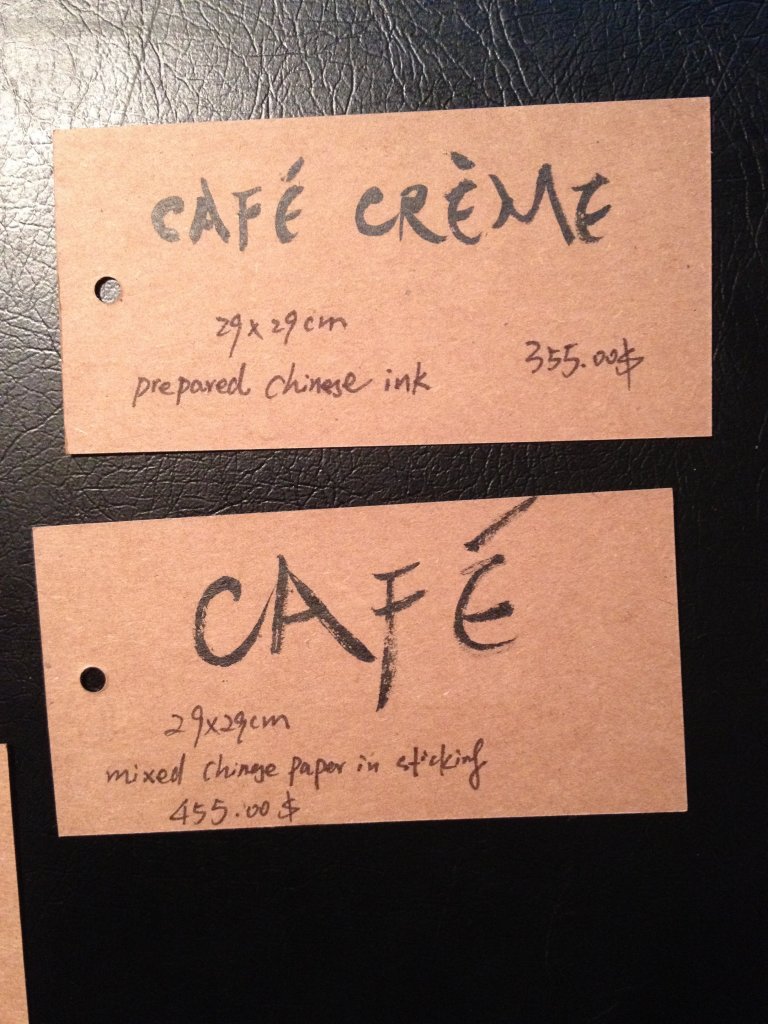 CAFÉ CRÈME
29x29cm
prepared chinese ink
355.00$
CAFÉ
29x29cm
mixed chinese paper in sticking
455.00$